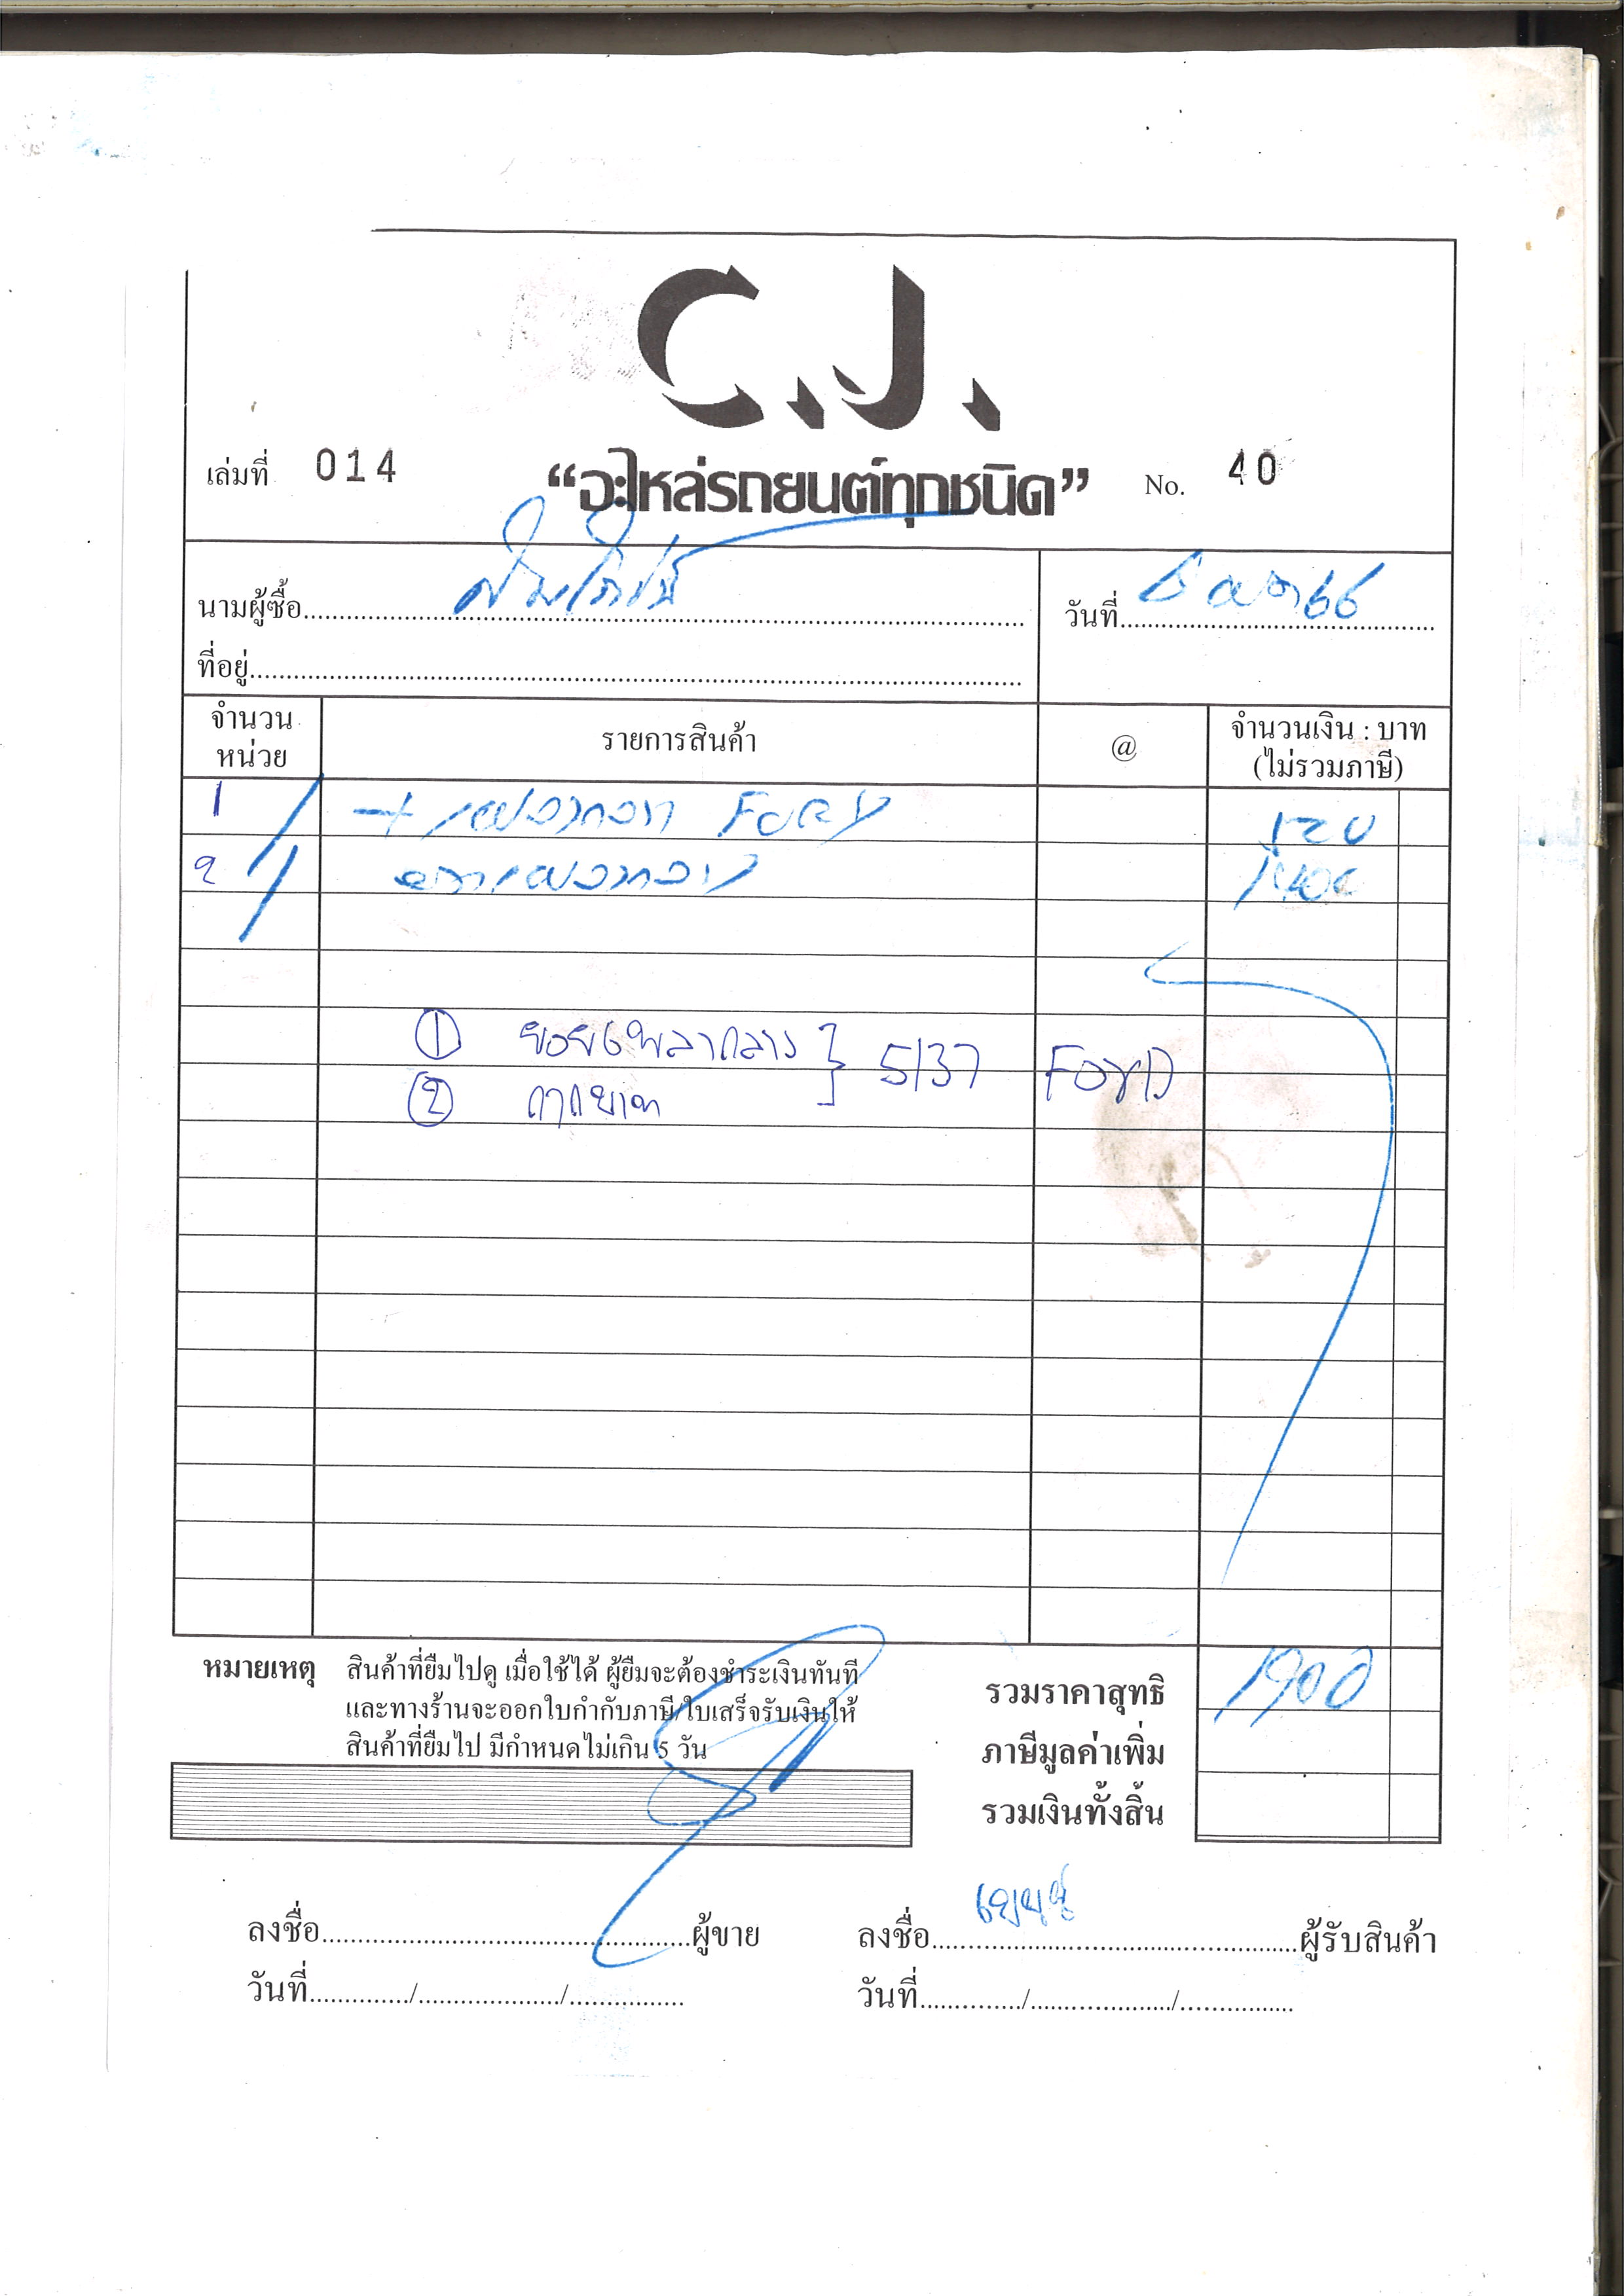 C.J.
เล่มที่ 014 “อะไหล่รถยนต์ทุกชนิด” No. 40
นามผู้ซื้อ
วันที่ 66
ที่อยู่
จำนวนหน่วย รายการสินค้า @ จำนวนเงิน : บาท (ไม่รวมภาษี)
1
2
① ยอยเพลากลาง } 5137 Ford
②
หมายเหตุ สินค้าที่ยืมไปดู เมื่อใช้ได้ ผู้ยืมจะต้องชำระเงินทันที
และทางร้านจะออกใบกำกับภาษี/ใบเสร็จรับเงินให้
สินค้าที่ยืมไป มีกำหนดไม่เกิน 5 วัน
รวมราคาสุทธิ 1900
ภาษีมูลค่าเพิ่ม
รวมเงินทั้งสิ้น
ลงชื่อ ผู้ขาย ลงชื่อ ผู้รับสินค้า
วันที่ / / วันที่ / /